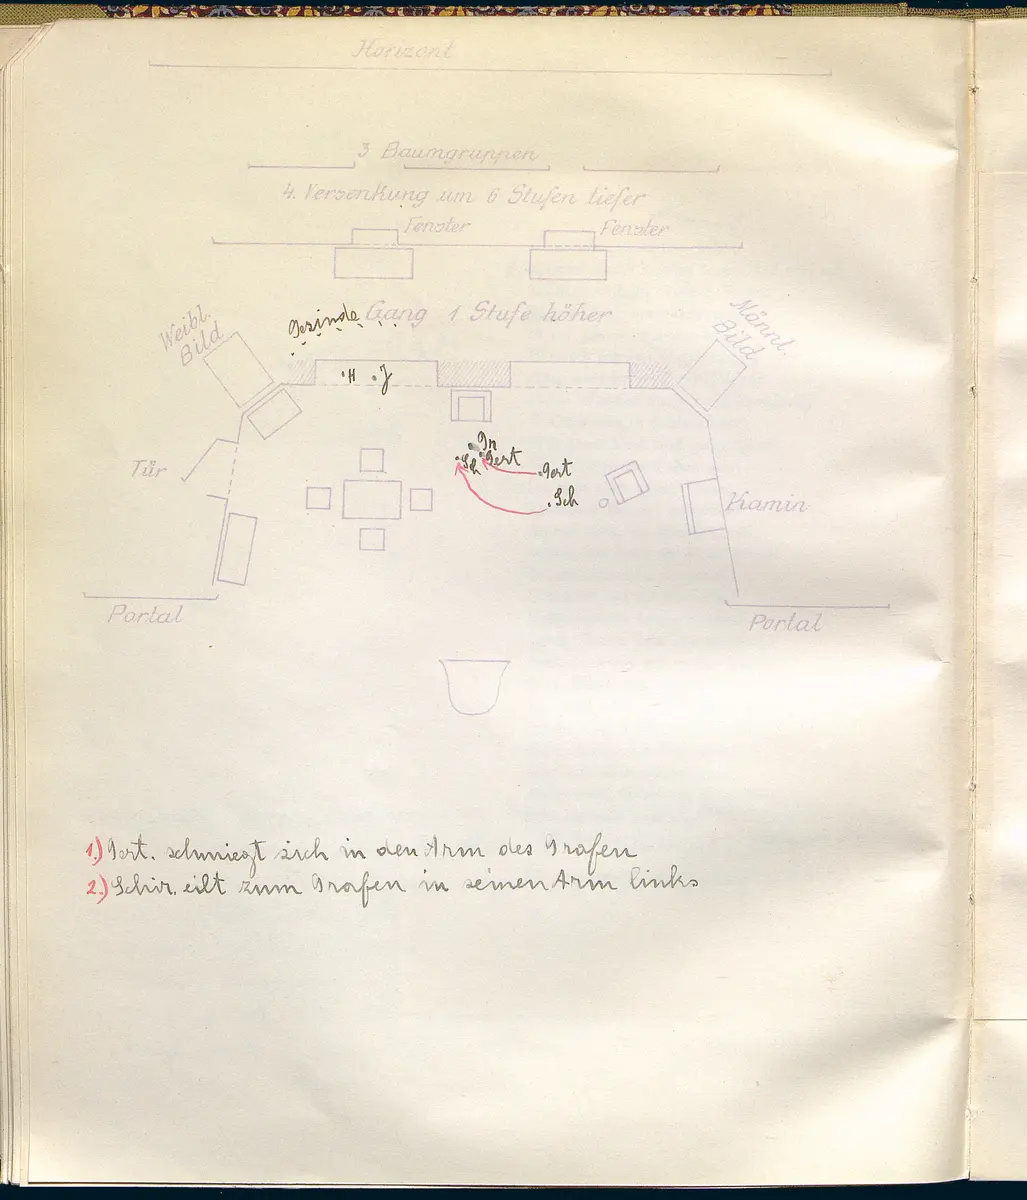 Horizont
3 Baumgruppen
4. Versenkung um 6 Stufen tiefer
Fenster
Fenster
Gesinde
Gang 1 Stufe höher
Weibl. Bild
Männl. Bild
H J
Gr
Sch Gert
Gert
Sch
Tür
Kamin
Portal
Portal
1.) Gert. schmiegt sich in den Arm des Grafen
2.) Schir. eilt zum Grafen in seinen Arm links